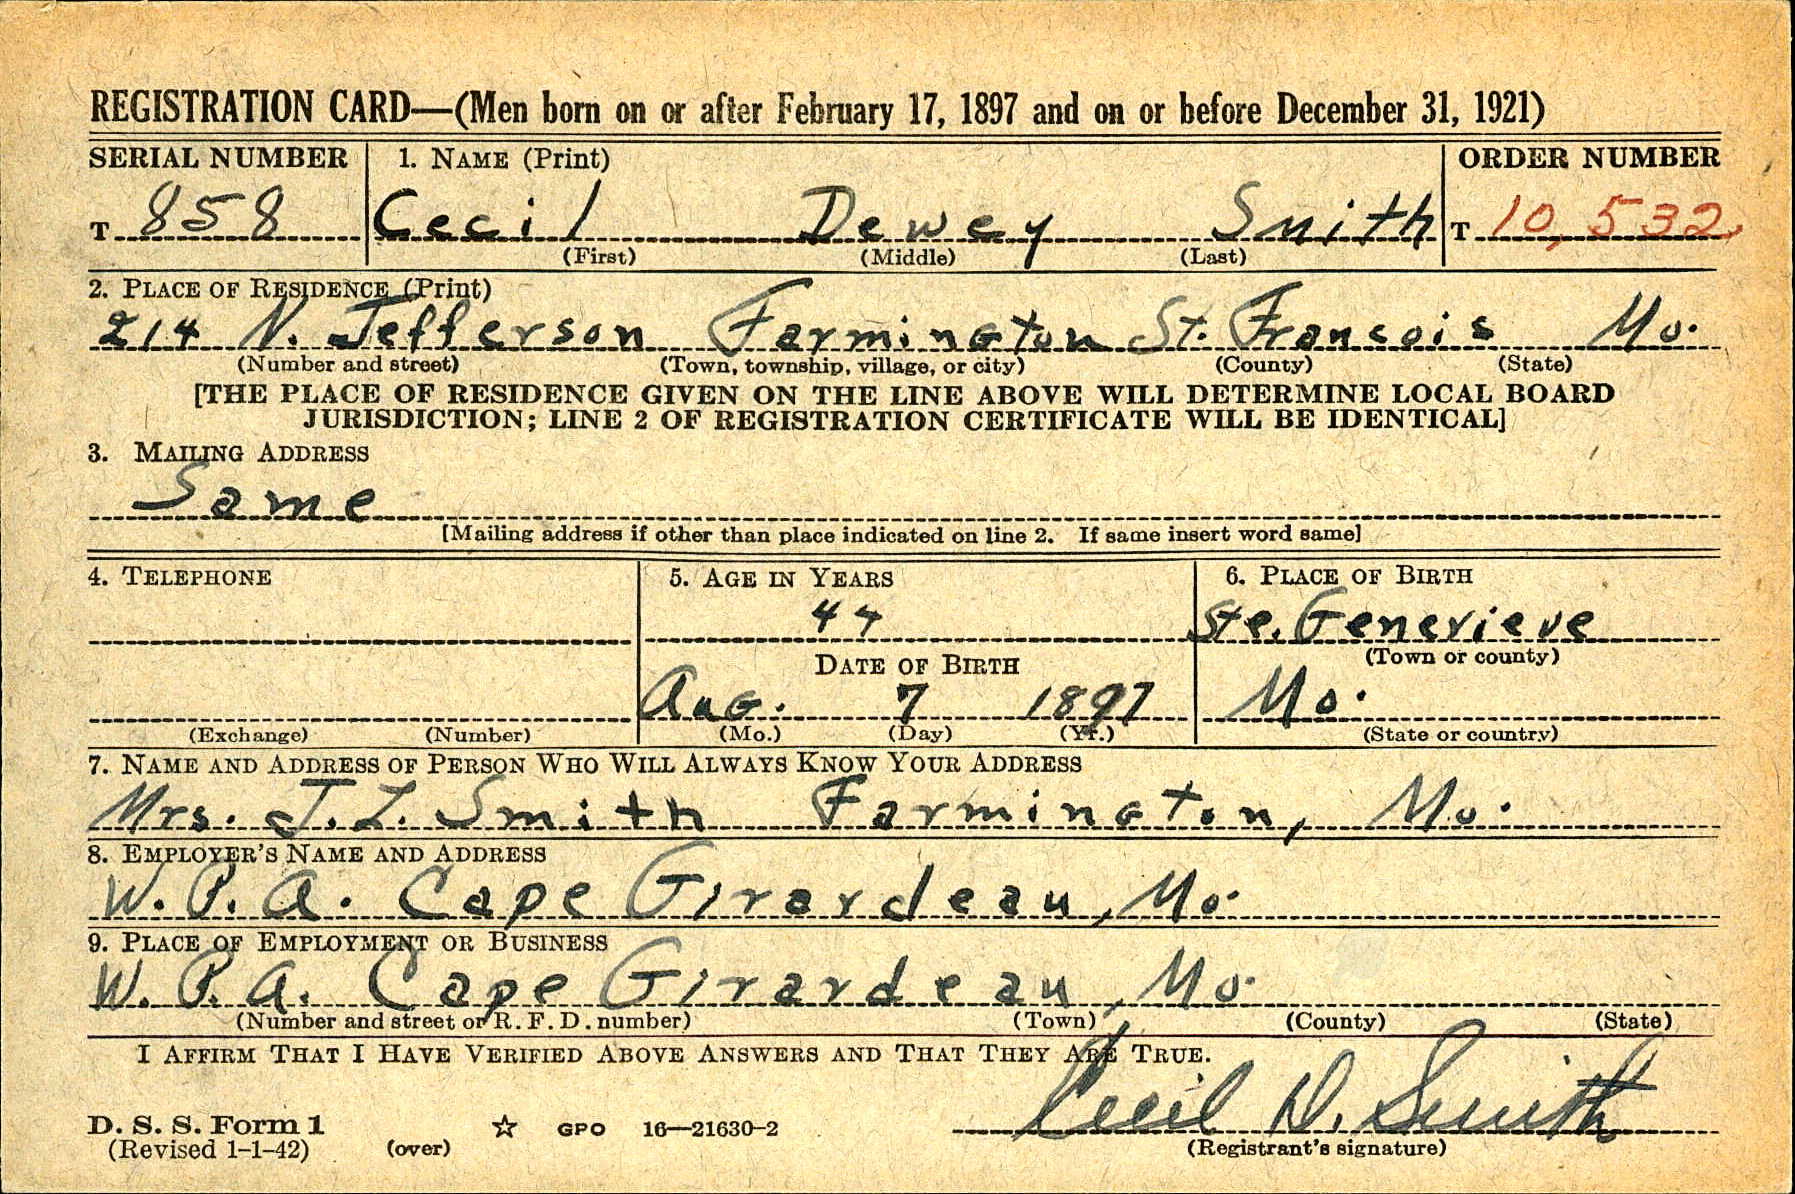 REGISTRATION CARD—(Men born on or after February 17, 1897 and on or before December 31, 1921)
SERIAL NUMBER 1. NAME (Print) ORDER NUMBER
T 858 Cecil Dewey Smith T 10,532
(First) (Middle) (Last)
2. PLACE OF RESIDENCE (Print)
214 N. Jefferson Farmington St. Francois Mo.
(Number and street) (Town, township, village, or city) (County) (State)
[THE PLACE OF RESIDENCE GIVEN ON THE LINE ABOVE WILL DETERMINE LOCAL BOARD
JURISDICTION; LINE 2 OF REGISTRATION CERTIFICATE WILL BE IDENTICAL]
3. MAILING ADDRESS
Same
[Mailing address if other than place indicated on line 2. If same insert word same]
4. TELEPHONE 5. AGE IN YEARS 6. PLACE OF BIRTH
44 Ste. Genevieve
DATE OF BIRTH (Town or county)
Aug. 7 1897 Mo.
(Exchange) (Number) (Mo.) (Day) (Yr.) (State or country)
7. NAME AND ADDRESS OF PERSON WHO WILL ALWAYS KNOW YOUR ADDRESS
Mrs. J. L. Smith Farmington, Mo.
8. EMPLOYER'S NAME AND ADDRESS
W. P. A. Cape Girardeau, Mo.
9. PLACE OF EMPLOYMENT OR BUSINESS
W. P. A. Cape Girardeau, Mo.
(Number and street or R. F. D. number) (Town) (County) (State)
I AFFIRM THAT I HAVE VERIFIED ABOVE ANSWERS AND THAT THEY ARE TRUE.
Cecil D. Smith
D. S. S. Form 1 ☆ GPO 16—21630-2
(Revised 1-1-42) (over) (Registrant's signature)